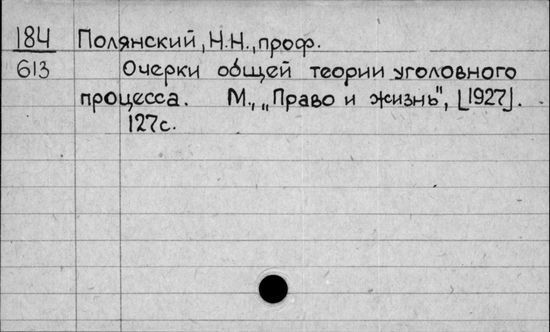 184 Полянский, Н.Н., проф.
613 Очерки общей теории уголовного
процесса. М., „Право и жизнь", [1927].
127с.